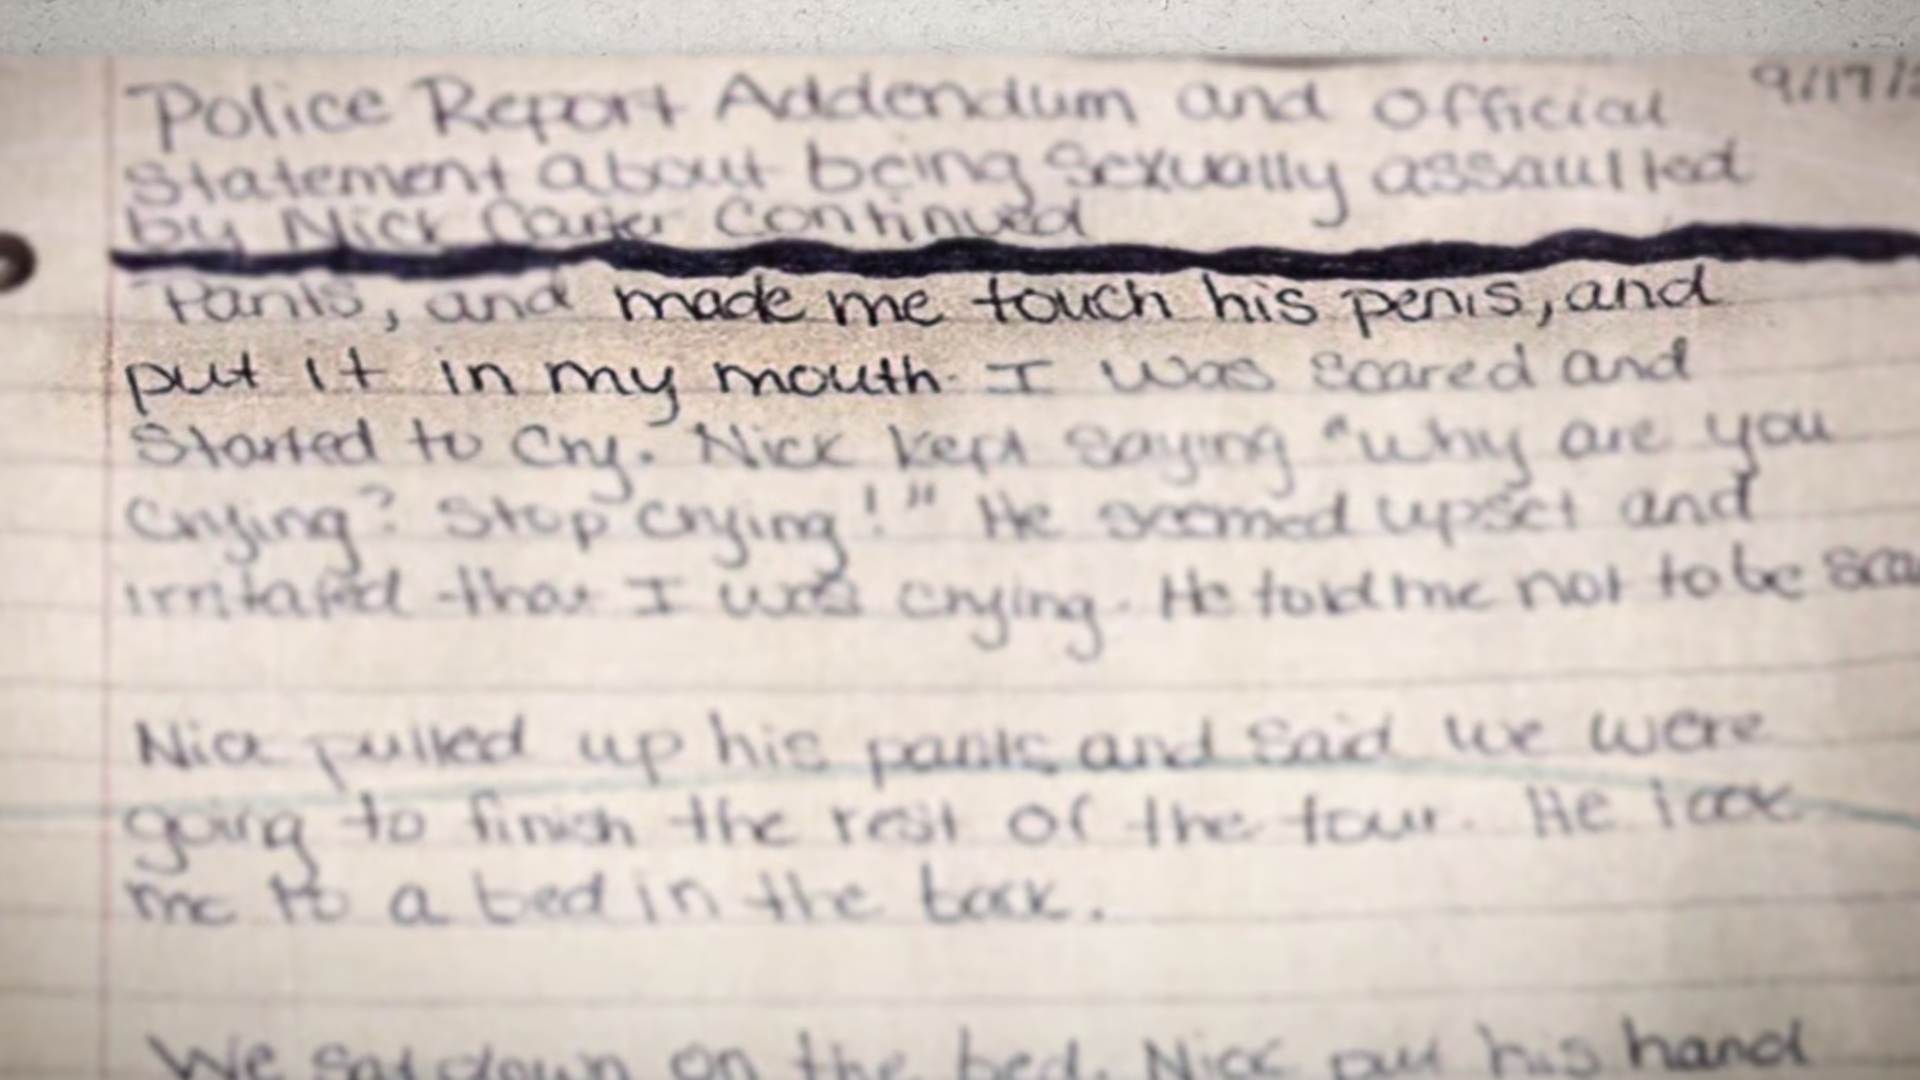 9/17/
Police Report Addendum and Official
Statement about being sexually assaulted
by Nick Carter Continued
Pants, and made me touch his penis, and
put it in my mouth. I was scared and
started to cry. Nick kept saying "why are you
crying? Stop crying!" He seemed upset and
irritated that I was crying. He told me not to be
Nick pulled up his pants and said we were
going to finish the rest of the tour. He took
me to a bed in the back.
We sat down on the bed. Nick put his hand